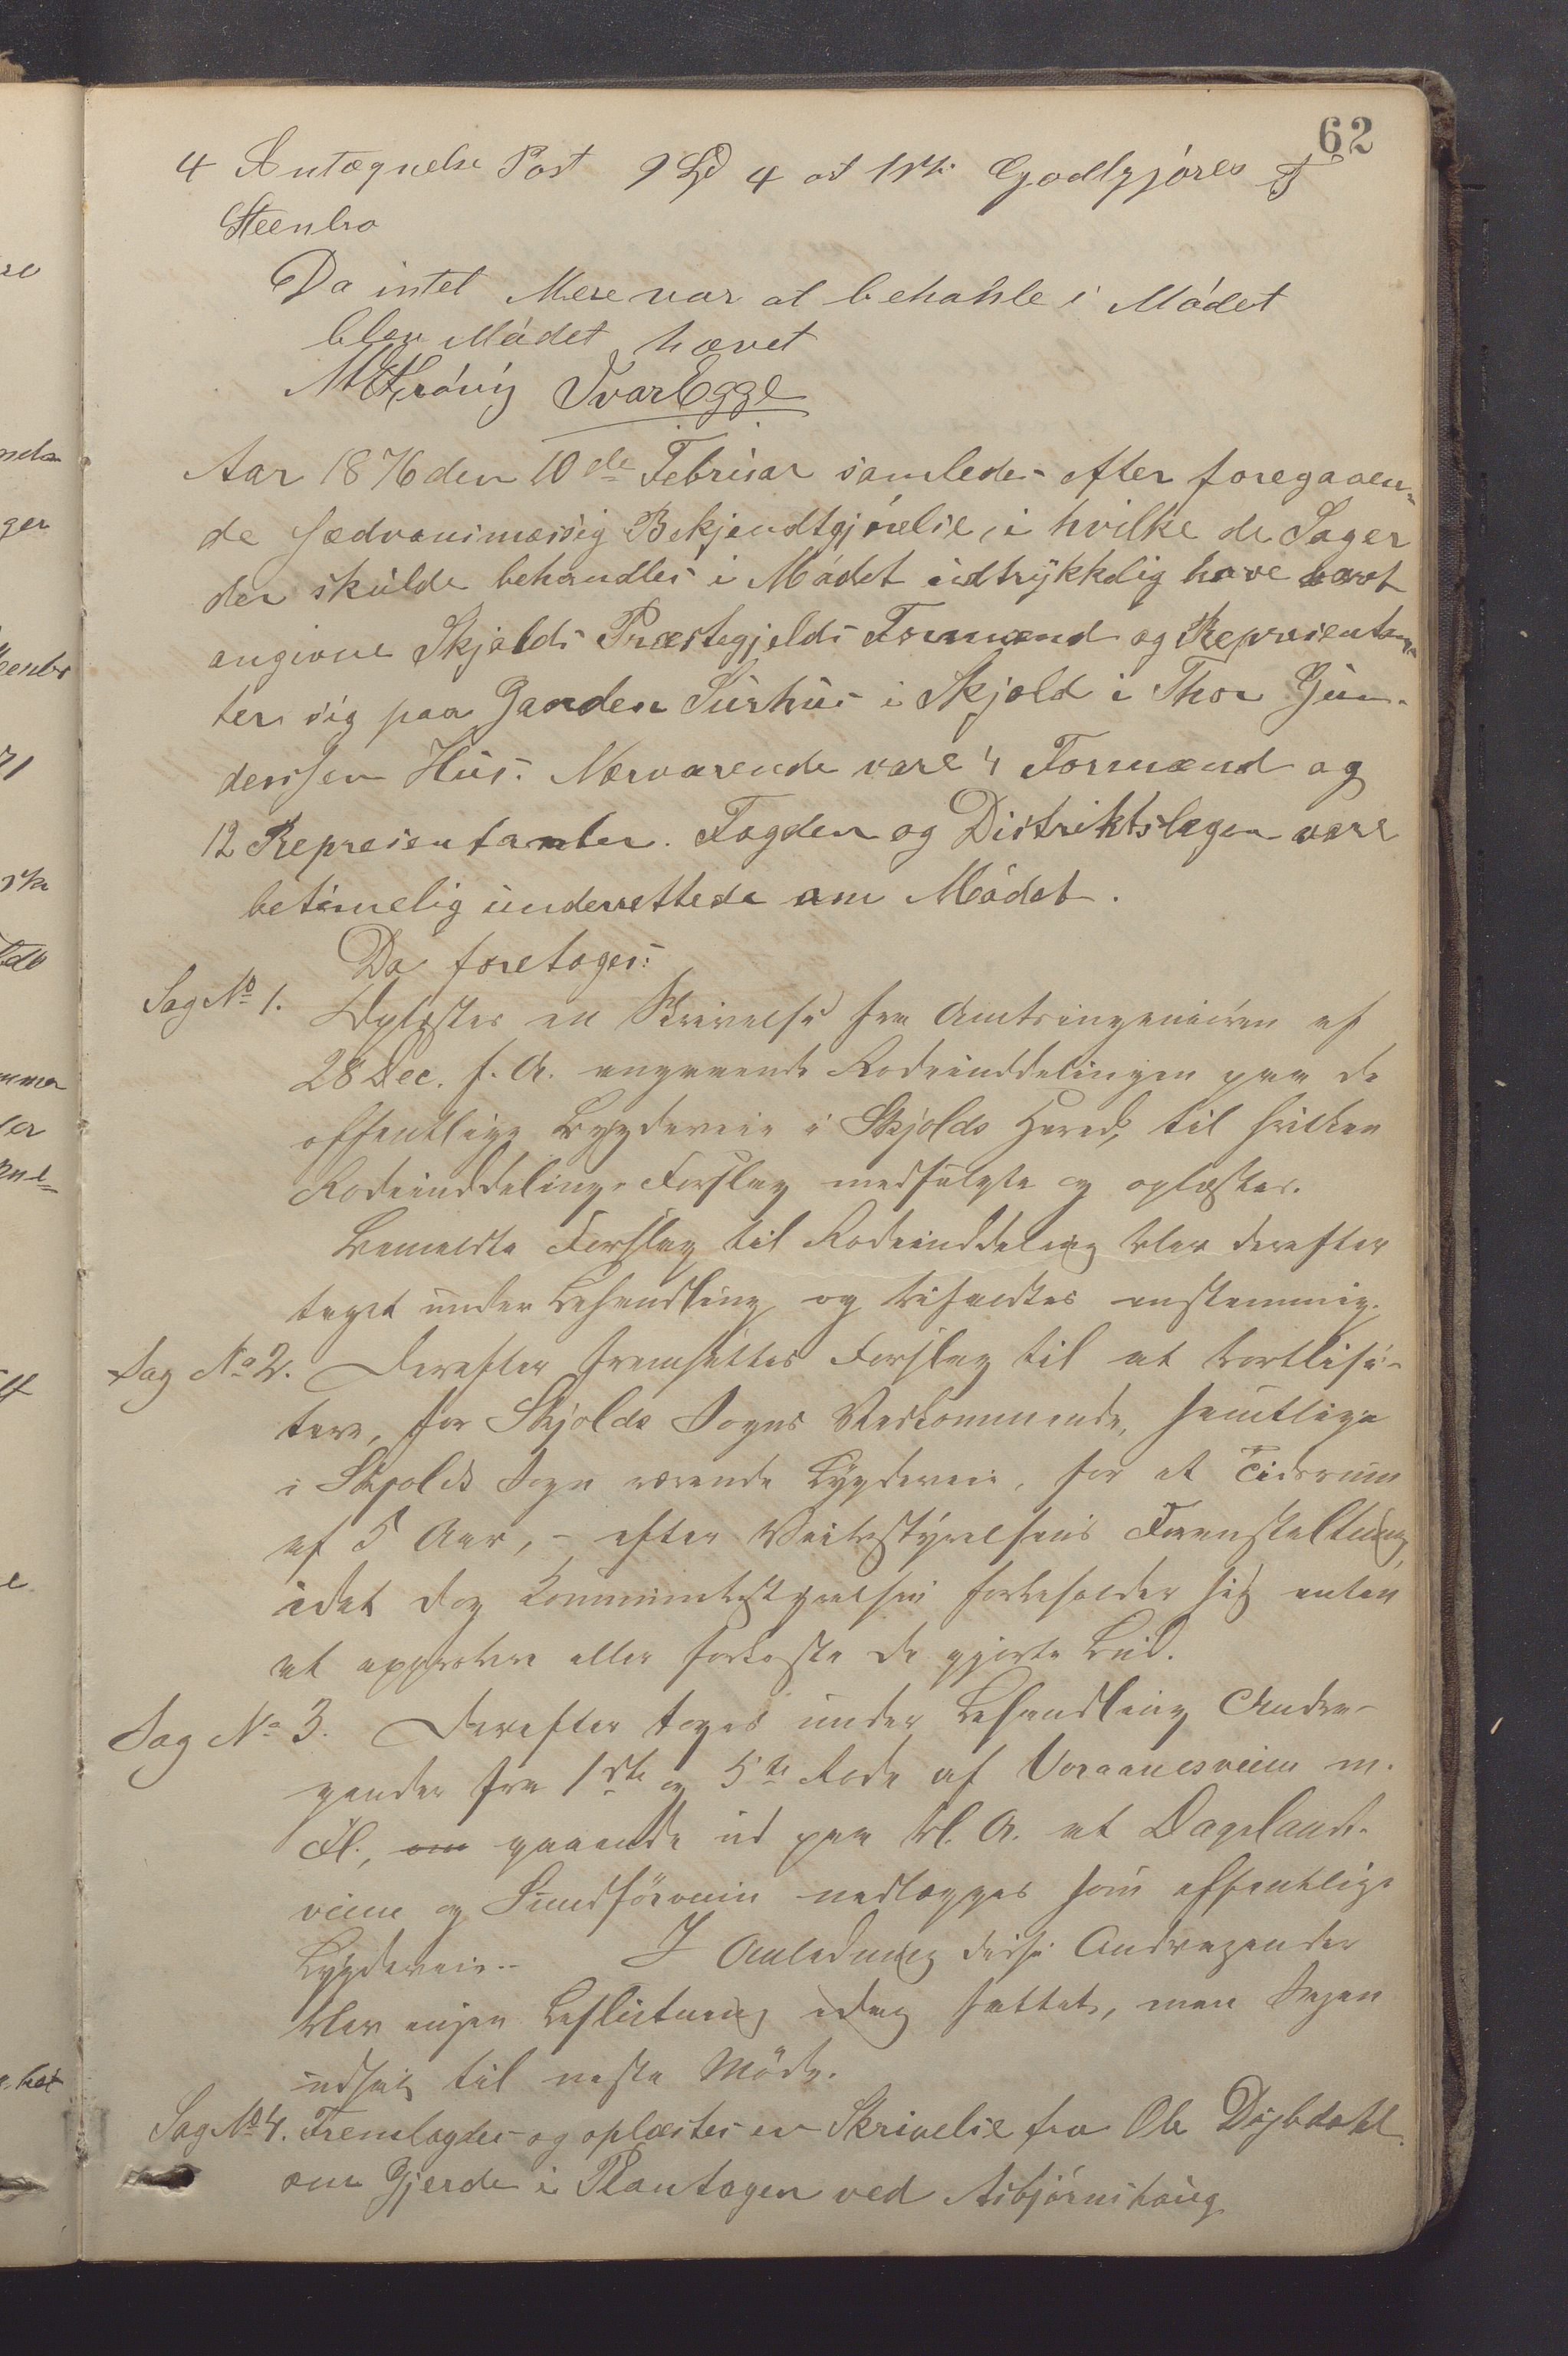 62
4 Antegnelse Post 9 Ld 4 at 1 Sk. Godtgjöres T
Steenbro
Da intet Mere var at behahle i Mödet
blev Mödet hævet
Ivar Egge
Aar 1876 den 10de Februar samledes efter foregaaen-
de sædvansmæssig Bekjendtgjörelse, i hvilke de Sager
der skulde behandles i Mödet udtrykkelig have været
angivne Skjolds Præstegjelds Formænd og Represientan-
ter sig paa Gaarden Surhus i Skjold i Thor Gun-
denssen Hus. Nærværende vare 4 Formænd og
12 Represientanter. Fogden og Distriktslægen vare
betimelig underrettede om Mödet.
Da foretoges:
Sag No 1. Oplæstes en Skrivelse fra Amtsingeniören af
28 Dec. f. A. angaaende Rodeinddelingen paa de
offentlige Bygdeveie i Skjolds Hered, til hvilken
Rodeinddelings Forslag medfulgte og oplæstes.
Bemeldte Forslag til Rodeinddeling blev derefter
taget under Behandling og bifaldtes enstemmig.
Sag No 2. Derefter fremsattes Forslag til at bortlisi-
tere, for Skjolds Sogns Vedkommende, samtlige
i Skjolds Sogn værende Bygdeveie, for et Tidsrum
af 5 Aar, - efter Veibestyrelsens Foranstaltning,
idet dog Kommunebestyrelsen forbeholder sig enten
at approbere eller forkaste de gjorte Bud.
Sag No 3. Derefter toges under Behandling Andra-
gender fra 1ste og 5te Rode af Voraanesveien m.
Fl., om gaaende ud paa bl. A. at Dagslands-
veien og Sundförveien nedlægges som offentlige
Bygdeveie.- I Anledning disse Andragender
blev ingen Beslutning idag fattet, men Sagen
udsat til næste Möde.
Sag No 4. Fremlagdes og oplæstes en Skrivelse fra Ole Dybdahl
om Gjerde i Plantagen ved Asbjörnshaug